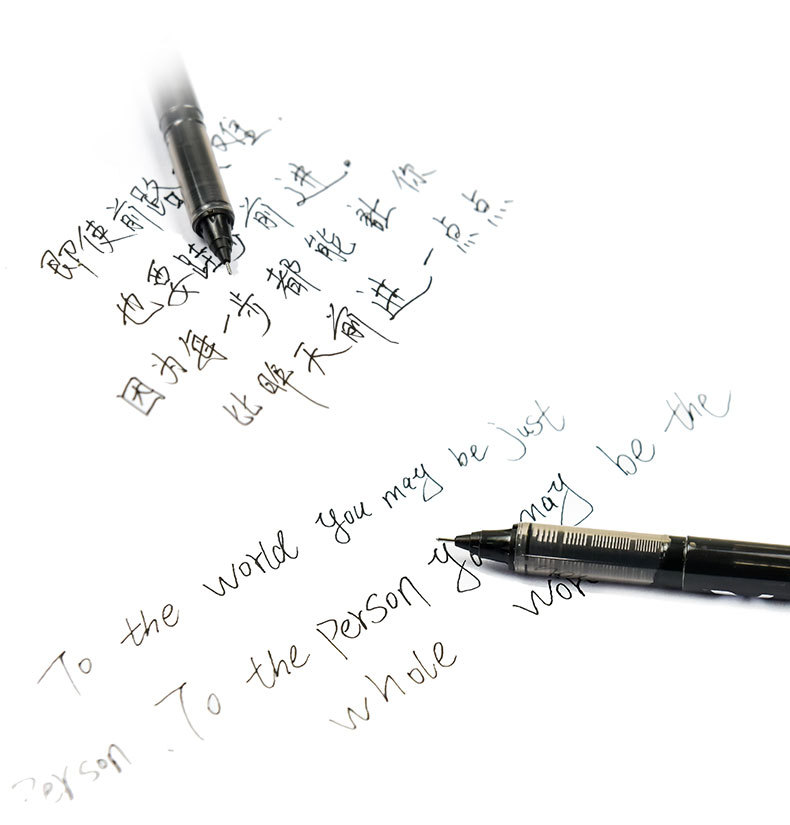 即使前路 难
也要 前进。
因为每一步都能让你
比昨天前进一点点
To the world you may be just
Person. To the person yo may be the
whole wor